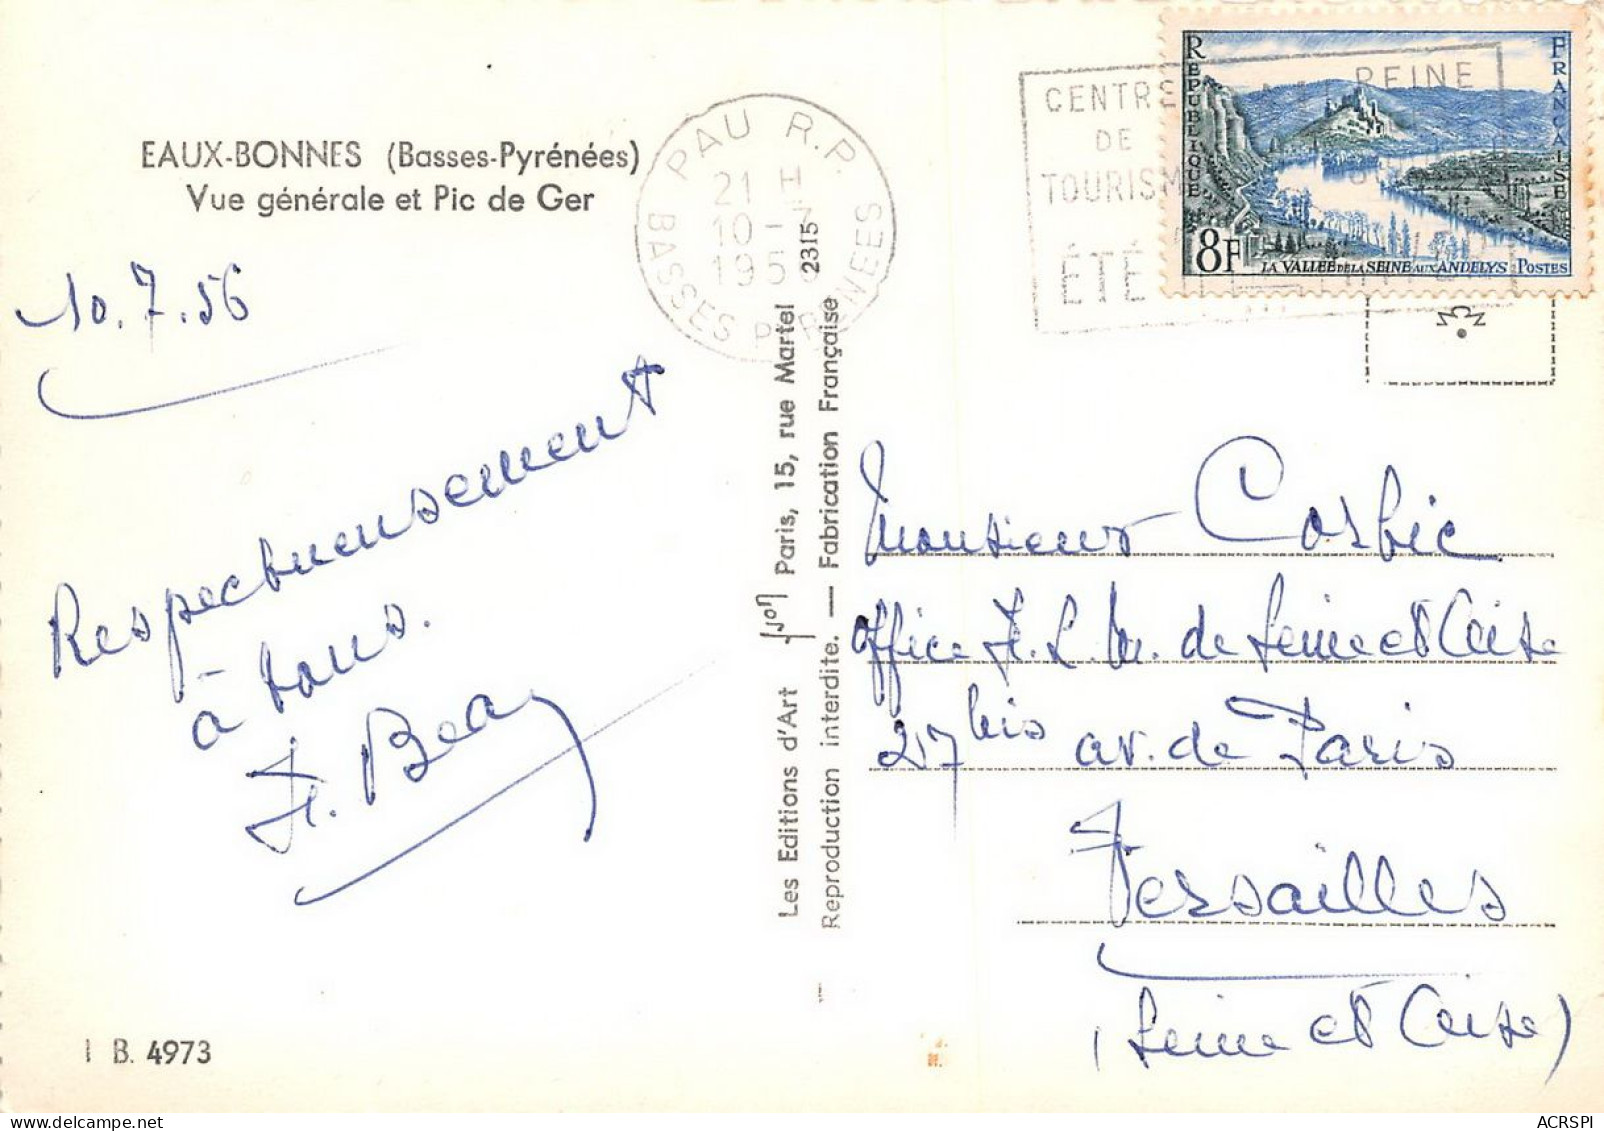 EAUX-BONNES (Basses-Pyrénées)
Vue générale et Pic de Ger
10.7.56
Respectueusement
à tous.
I B. 4973
PAU R.P.
21 H
10-7
195
BASSES PYRENEES
2315
Les Editions d'Art Yvon Paris, 15, rue Martel
Reproduction interdite. — Fabrication Française
CENTRE REINE
DE
TOURISM
ÉTÉ
REPUBLIQUE FRANÇAISE
8F
LA VALLEE DE LA SEINE AUX ANDELYS POSTES
Monsieur Corbic
Office H.L.M. de Seine et Oise
27 bis av. de Paris
Versailles
(Seine et Oise)
ACRSPI